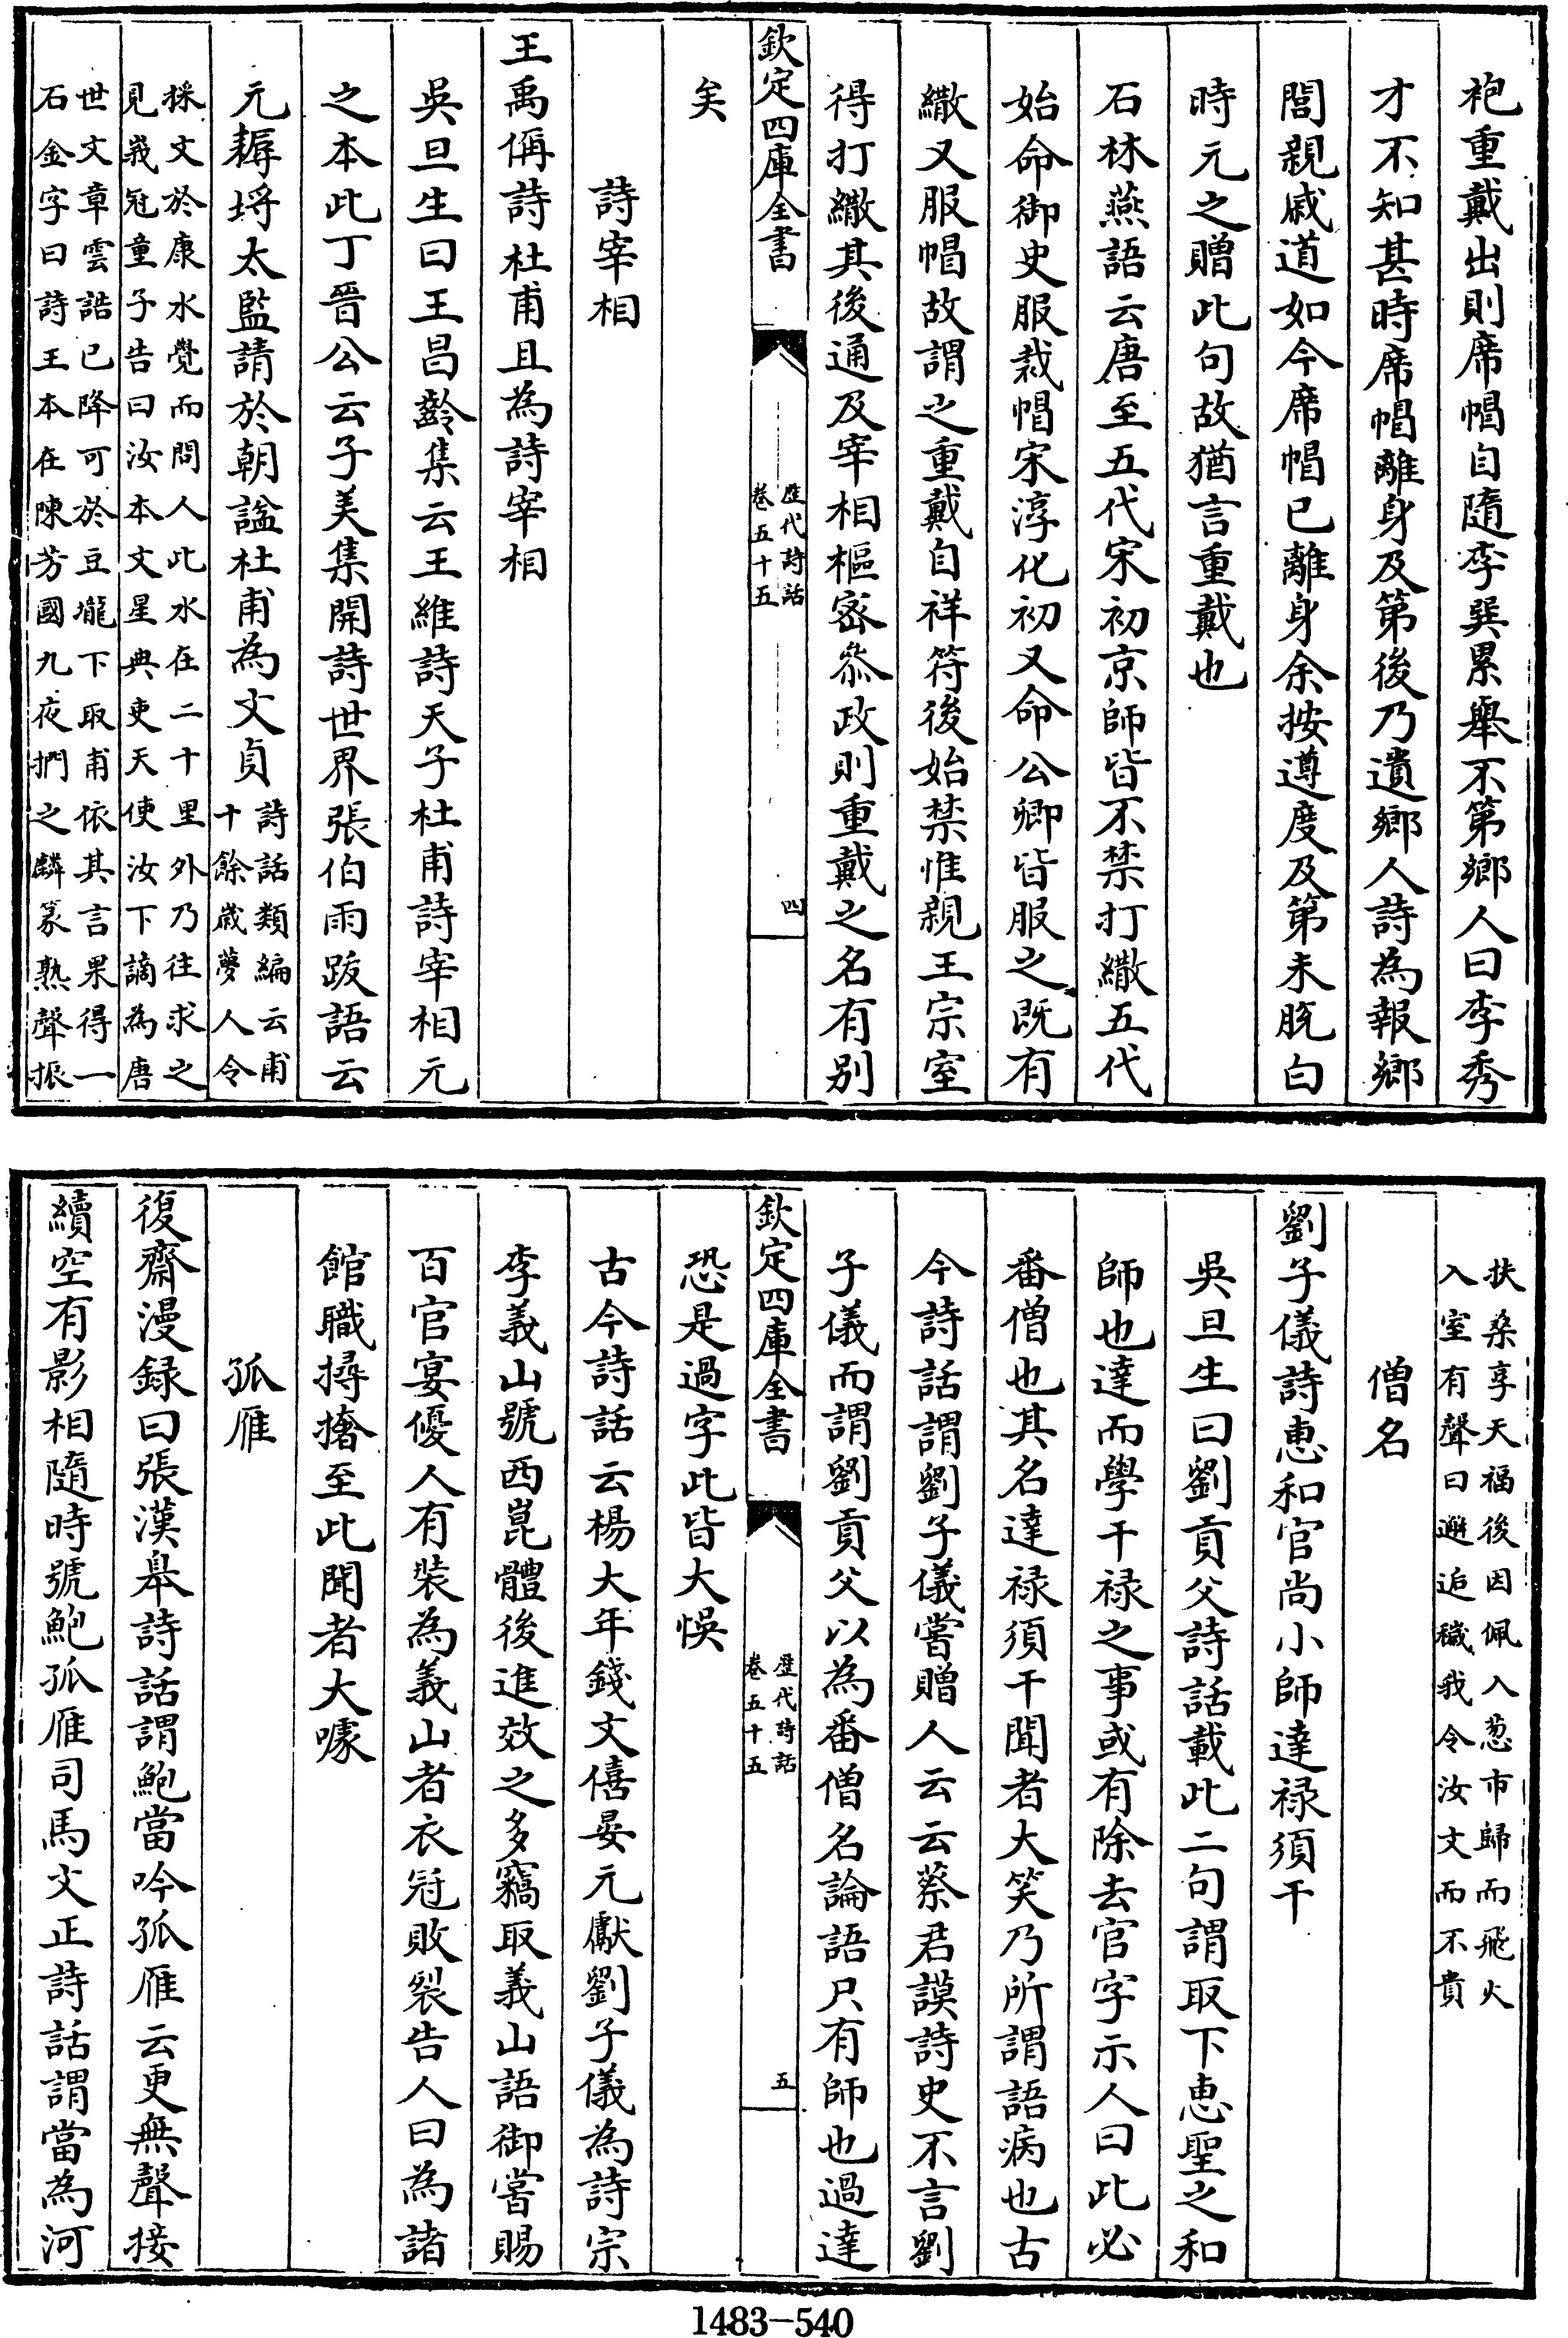 袍重戴出則席帽自隨李巽累舉不第鄉人曰李秀
才不知甚時席帽離身及第後乃遺鄉人詩為報鄉
閭親戚道如今席帽已離身余按遵度及第未脫白
時元之贈此句故猶言重戴也
石林燕語云唐至五代宋初京師皆不禁打繖五代
始命御史服裁帽宋淳化初又命公卿皆服之既有
繖又服帽故謂之重戴自祥符後始禁惟親王宗室
得打繖其後通及宰相樞密叅政則重戴之名有別
欽定四庫全書
歴代詩話
卷五十五
四
矣
詩宰相
王禹偁詩杜甫且為詩宰相
吳旦生曰王昌齡集云王維詩天子杜甫詩宰相元
之本此丁晉公云子美集開詩世界張伯雨跋語云
元耨埒太監請於朝諡杜甫為文貞
詩話類編云甫
十餘歲夢人令
採文於康水覺而問人此水在二十里外乃往求之
見峩冠童子告曰汝本文星典吏天使汝下謫為唐
世文章雲誥已降可於豆壠下取甫依其言果得一
石金字曰詩王本在陳芳國九夜捫之麟篆熟聲振
扶桑享天福後因佩入葱市歸而飛火
入室有聲曰邂逅穢我令汝文而不貴
僧名
劉子儀詩惠和官尚小師達祿須干
吳旦生曰劉貢父詩話載此二句謂取下惠聖之和
師也達而學干祿之事或有除去官字示人曰此必
番僧也其名達祿須干聞者大笑乃所謂語病也古
今詩話謂劉子儀嘗贈人云云蔡君謨詩史不言劉
子儀而謂劉貢父以為番僧名論語只有師也過達
欽定四庫全書
歴代詩話
卷五十五
五
恐是過字此皆大悞
古今詩話云楊大年錢文僖晏元獻劉子儀為詩宗
李義山號西崑體後進效之多竊取義山語御嘗賜
百官宴優人有裝為義山者衣冠敗裂告人曰為諸
館職撏撦至此聞者大噱
孤雁
復齋漫録曰張漢臯詩話謂鮑當吟孤雁云更無聲接
續空有影相隨時號鮑孤雁司馬文正詩話謂當為河
1483-540